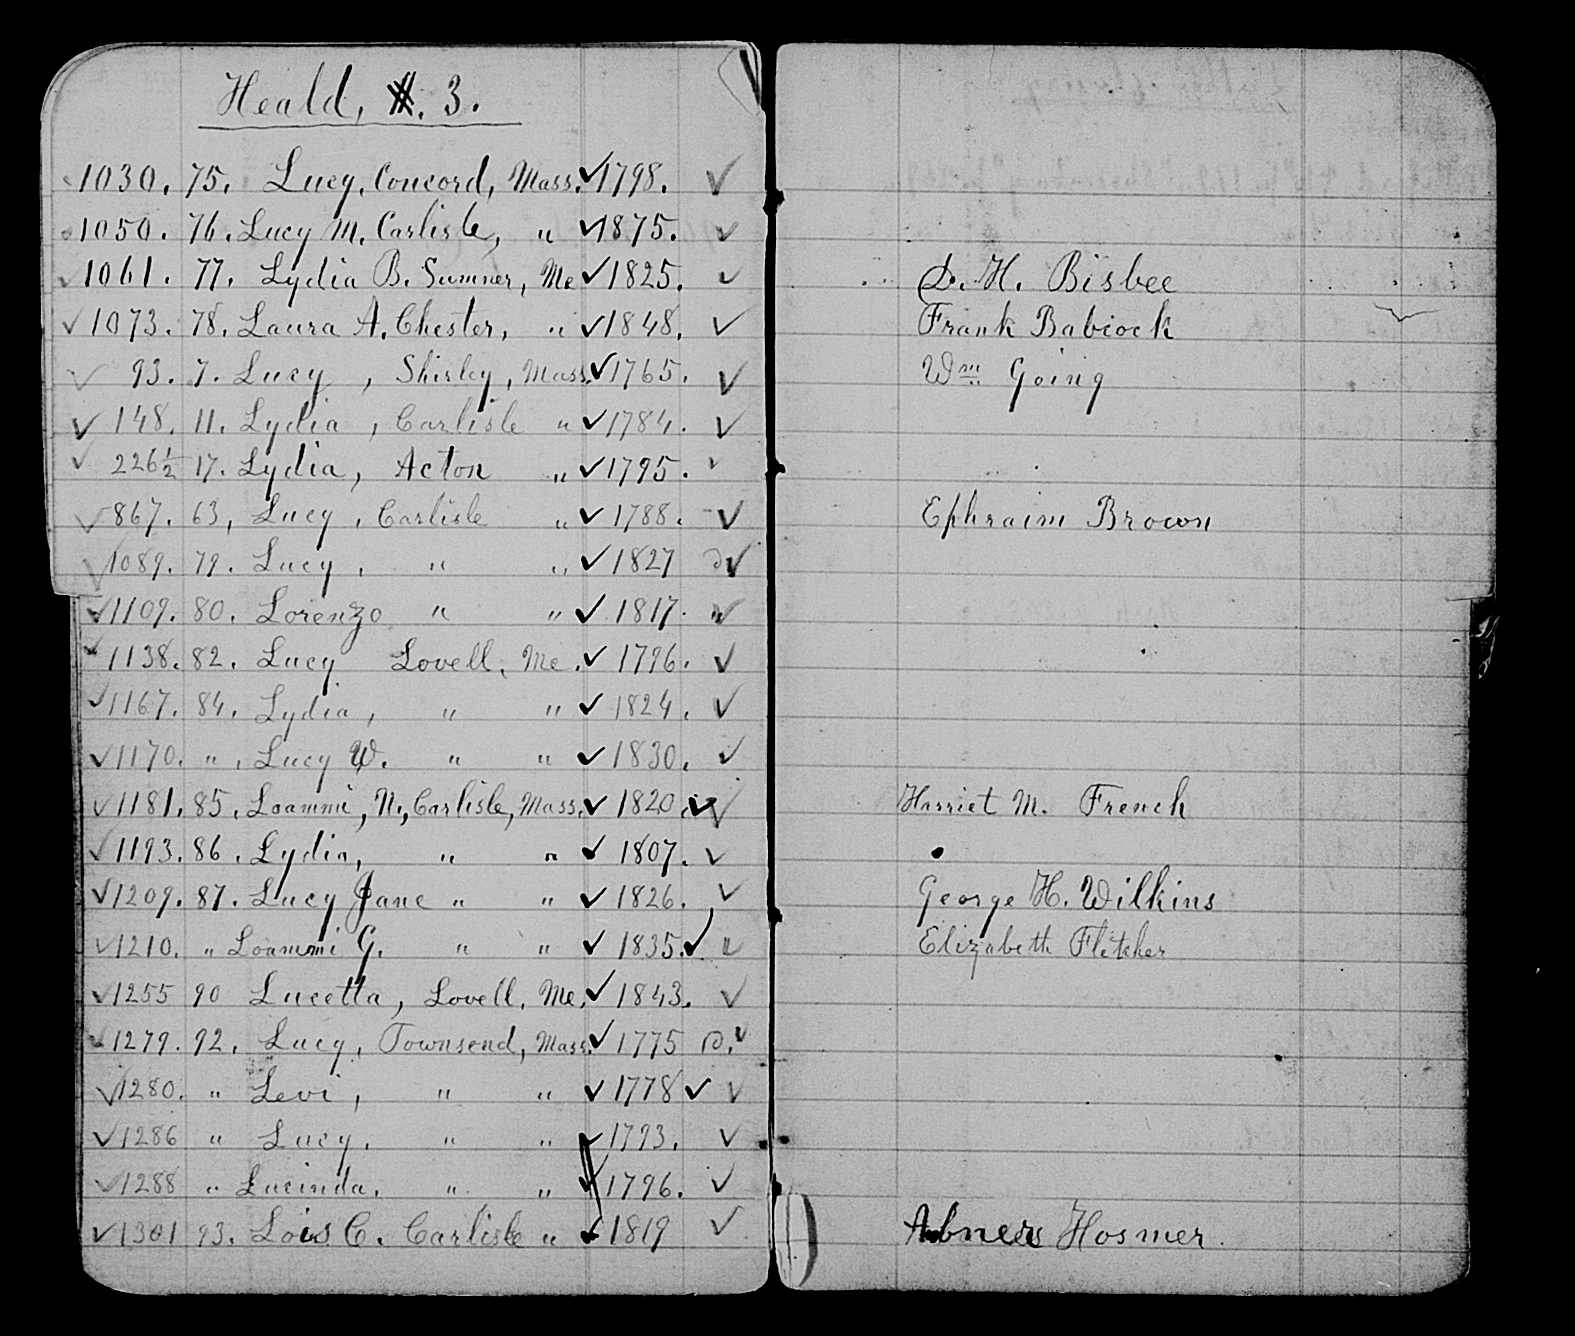 Heald, 3.
1030. 75. Lucy, Concord, Mass. ✓ 1798. ✓
1050. 76. Lucy M. Carlisle, " ✓ 1875. ✓
✓ 1061. 77. Lydia B. Sumner, Me ✓ 1825. ✓ D. H. Bisbee
✓ 1073. 78. Laura A. Chester, " ✓ 1848. ✓ Frank Babcock
✓ 93. 7. Lucy, Shirley, Mass. ✓ 1765. ✓ Wm Going
✓ 148. 11. Lydia, Carlisle " ✓ 1784. ✓
✓ 226½ 17. Lydia, Acton " ✓ 1795. ✓
✓ 867. 63, Lucy, Carlisle " ✓ 1788. ✓ Ephraim Brown
✓ 1089. 79. Lucy, " " ✓ 1827 ✓
✓ 1109. 80. Lorenzo " " ✓ 1817. ✓
✓ 1138. 82. Lucy Lovell, Me. ✓ 1796. ✓
✓ 1167. 84. Lydia, " " ✓ 1824. ✓
✓ 1170. " , Lucy W. " " ✓ 1830. ✓
✓ 1181. 85. Loammi, N., Carlisle, Mass. ✓ 1820 ✓ Harriet M. French
✓ 1193. 86. Lydia, " " ✓ 1807. ✓
✓ 1209. 87. Lucy Jane " " ✓ 1826. ✓ George H. Wilkins
✓ 1210. " Loammi G. " " ✓ 1835. ✓ " Elizabeth Fletcher
✓ 1255 90 Lucetta, Lovell, Me. ✓ 1843. ✓
✓ 1279. 92. Lucy, Townsend, Mass. ✓ 1775 ✓
✓ 1280. " Levi, " " ✓ 1778 ✓ ✓
✓ 1286 " Lucy. " " ✓ 1793. ✓
✓ 1288 " Lucinda. " " ✓ 1796. ✓
✓ 1301 93. Lois C. Carlisle " ✓ 1819 ✓ Abner Hosmer.